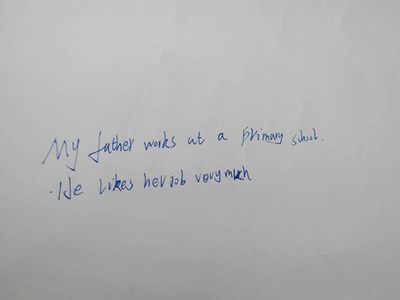 My father works at a primary school.
He likes her job very much